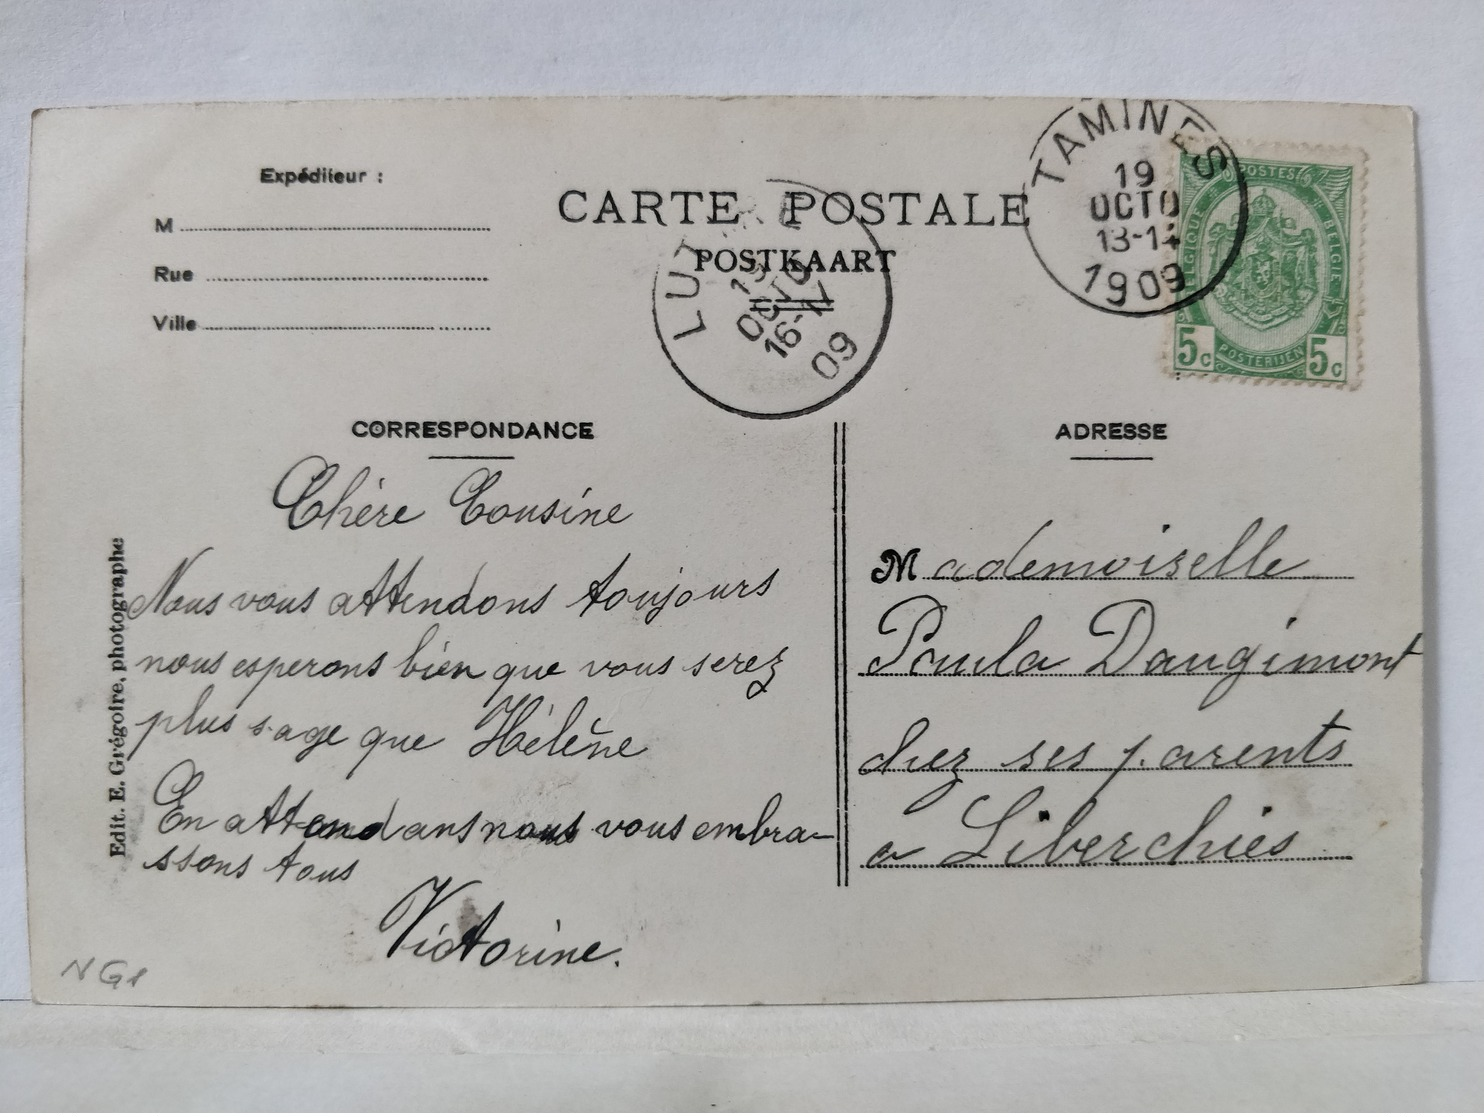 Expéditeur :
M
Rue
Ville
CARTE POSTALE
POSTKAART
TAMINES
19
OCTO
13-14
1909
POSTES
BELGIQUE
BELGIE
POSTERIJEN
5c
5c
LUT
19
OCTO
16-17
09
CORRESPONDANCE
Chère Cousine
Nous vous attendons toujours
nous esperons bien que vous serez
plus sage que Hélène
En attendans nous vous embra-
ssons tous
Victorine.
ADRESSE
Mademoiselle
Paula Daugimont
chez ses parents
a Liberchies
Edit. E. Grégoire, photographe
NG1